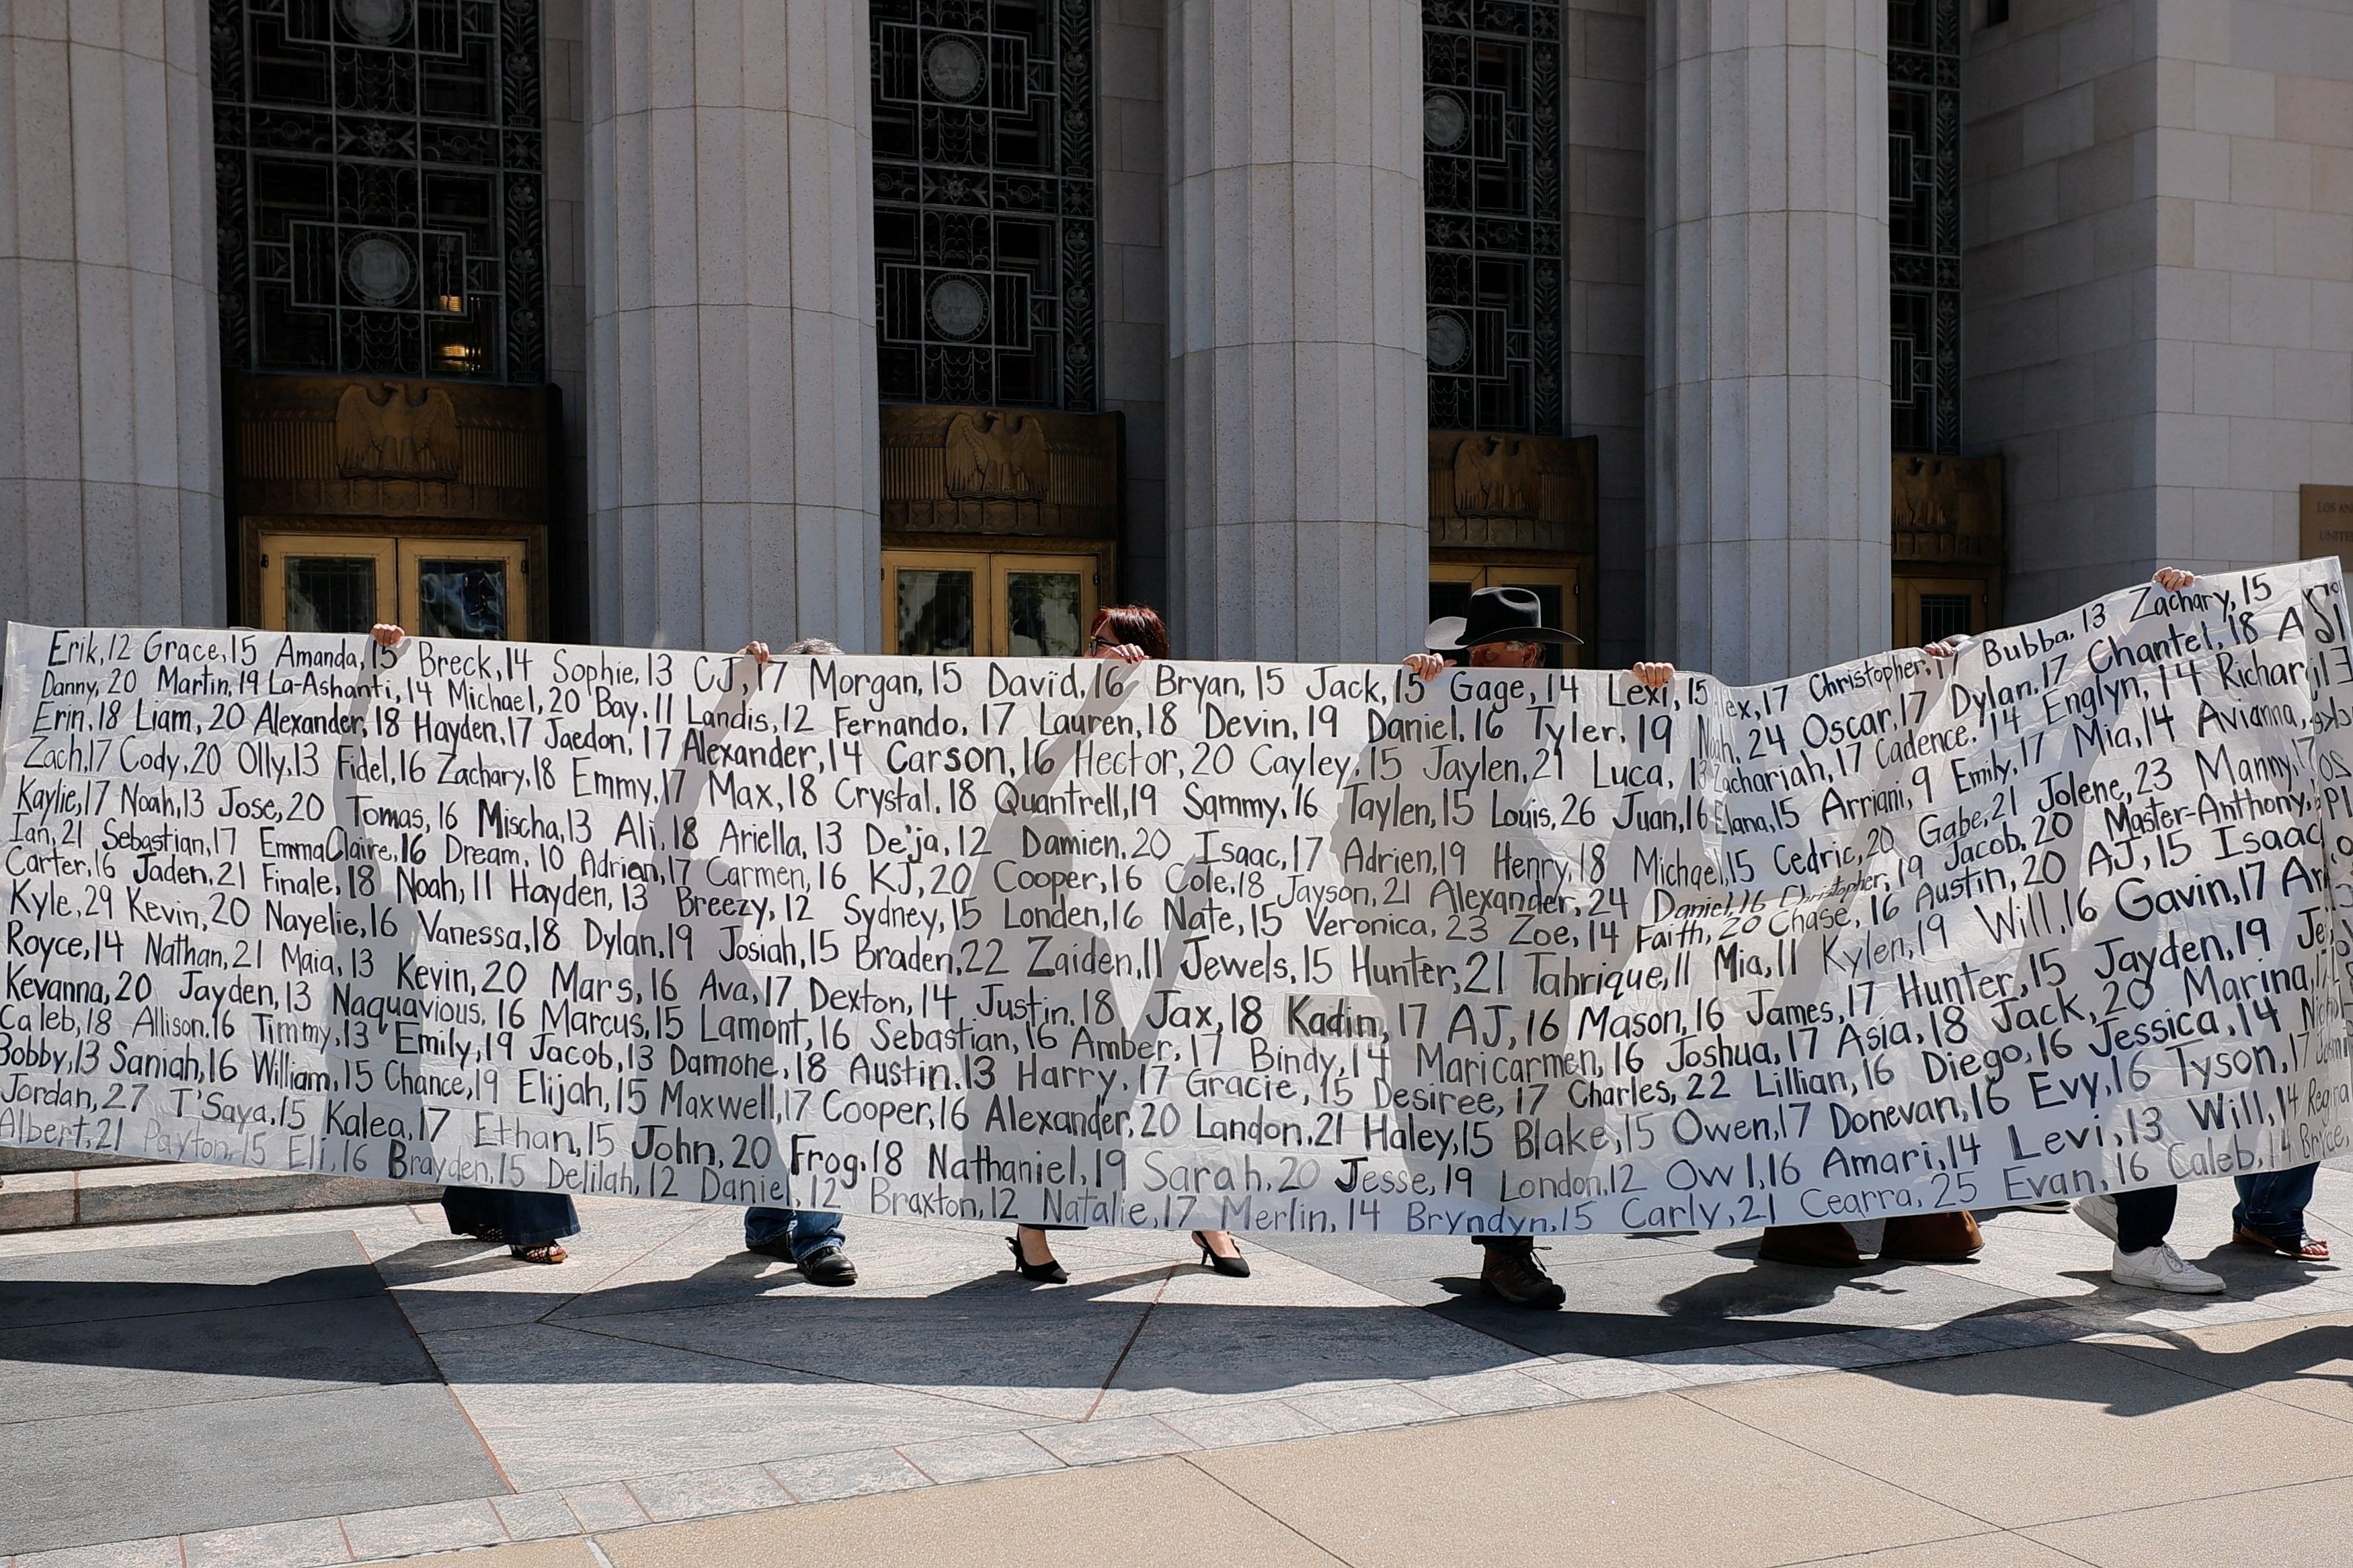 LOS AN
UNITE
Erik,12 Grace,15 Amanda,15 Breck,14 Sophie,13 CJ,17 Morgan,15 David,16 Bryan,15 Jack,15 Gage,14 Lexi,15 lex,17 Christopher,17 Bubba,13 Zachary,15
Danny,20 Martin,19 La-Ashanti,14 Michael,20 Bay,11 Landis,12 Fernando,17 Lauren,18 Devin,19 Daniel,16 Tyler,19 Noah,24 Oscar,17 Dylan,17 Chantel,18
Erin,18 Liam,20 Alexander,18 Hayden,17 Jaedon,17 Alexander,14 Carson,16 Hector,20 Cayley,15 Jaylen,21 Luca,13 Zachariah,17 Cadence,14 Englyn,14 Richar
Zach,17 Cody,20 Olly,13 Fidel,16 Zachary,18 Emmy,17 Max,18 Crystal,18 Quantrell,19 Sammy,16 Taylen,15 Louis,26 Juan,16 Elana,15 Arriani,9 Emily,17 Mia,14 Avianna,
Kaylie,17 Noah,13 Jose,20 Tomas,16 Mischa,13 Ali,18 Ariella,13 De'ja,12 Damien,20 Isaac,17 Adrien,19 Henry,18 Michael,15 Cedric,20 Gabe,21 Jolene,23 Manny,17
Ian,21 Sebastian,17 EmmaClaire,16 Dream,10 Adrien,17 Carmen,16 KJ,20 Cooper,16 Cole,18 Jayson,21 Alexander,24 Daniel,16 Christopher,19 Jacob,20 Master-Anthony,
Carter,16 Jaden,21 Finale,18 Noah,11 Hayden,13 Breezy,12 Sydney,15 Londen,16 Nate,15 Veronica,23 Zoe,14 Faith,20 Chase,16 Austin,20 AJ,15 Isaac
Kyle,29 Kevin,20 Nayelie,16 Vanessa,18 Dylan,19 Josiah,15 Braden,22 Zaiden,11 Jewels,15 Hunter,21 Tahrique,11 Mia,11 Kylen,19 Will,16 Gavin,17
Royce,14 Nathan,21 Maia,13 Kevin,20 Mars,16 Ava,17 Dexton,14 Justin,18 Jax,18 Kadin,17 AJ,16 Mason,16 James,17 Hunter,15 Jayden,19
Kevanna,20 Jayden,13 Naquavious,16 Marcus,15 Lamont,16 Sebastian,16 Amber,17 Bindy,14 Maricarmen,16 Joshua,17 Asia,18 Jack,20 Marina,17
Caleb,18 Allison,16 Timmy,13 Emily,19 Jacob,13 Damone,18 Austin,13 Harry,17 Gracie,15 Desiree,17 Charles,22 Lillian,16 Diego,16 Jessica,14
Bobby,13 Saniah,16 William,15 Chance,19 Elijah,15 Maxwell,17 Cooper,16 Alexander,20 Landon,21 Haley,15 Blake,15 Owen,17 Donevan,16 Evy,16 Tyson,17
Jordan,27 T'Saya,15 Kalea,17 Ethan,15 John,20 Frog,18 Nathaniel,19 Sarah,20 Jesse,19 London,12 Owl,16 Amari,14 Levi,13 Will,14
Albert,21 Payton,15 Eli,16 Brayden,15 Delilah,12 Daniel,12 Braxton,12 Natalie,17 Merlin,14 Bryndyn,15 Carly,21 Cearra,25 Evan,16 Caleb,14 Bryce,